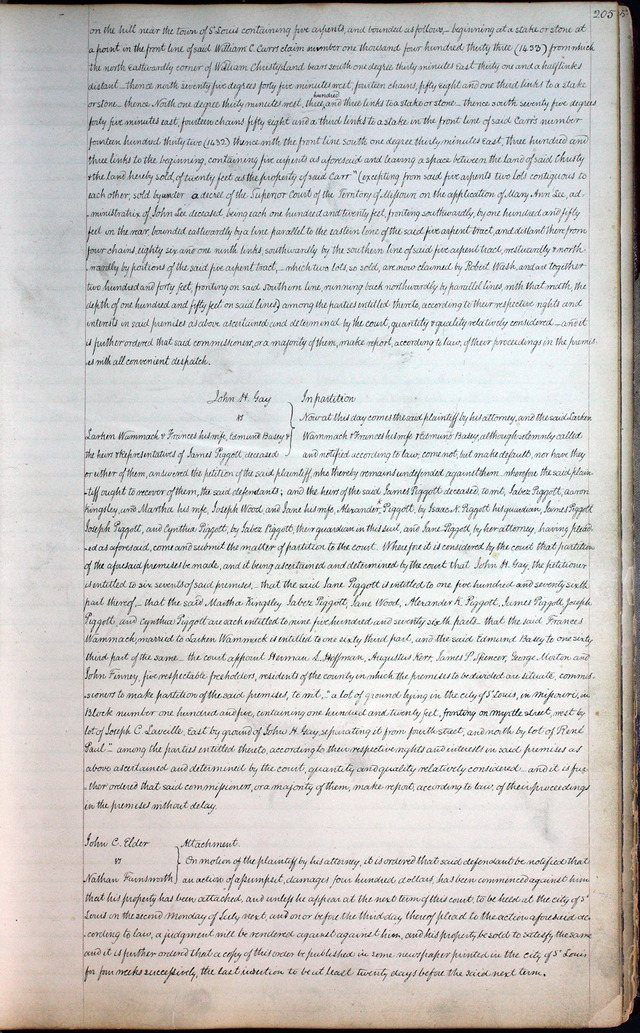 205 5
on the hill near the town of St Louis containing five arpents, and bounded as follows, – beginning at a stake or stone at
a point in the front line of said William C. Carr's claim number one thousand four hundred thirty three (1433) from which
the north Eastwardly corner of William Christy's land bears south one degree thirty minutes East thirty one and a half links
distant – thence north seventy five degrees forty five minutes west, fourteen chains, fifty eight and one third links to a stake
or stone – thence North one degree thirty minutes west, three hundred and three links to a stake or stone – thence south seventy five degrees
forty five minutes east, fourteen chains fifty Eight and a third links to a stake in the front line of said Carr's number
fourteen hundred thirty two (1432) thence with the front line south one degree thirty minutes East, three hundred and
three links to the beginning, containing five arpents as aforesaid and leaving a space between the land of said Christy
& the land hereby sold, of twenty feet as the property of said Carr" (excepting from said five arpents two lots contiguous to
each other, sold by under a decree of the Superior Court of the Territory of Missouri on the application of Mary Ann Lee, ad-
-ministratrix of John Lee deceased, being each one hundred and twenty feet, fronting southwardly, by one hundred and fifty
feet in the rear, bounded eastwardly by a line parallel to the eastern line of the said five arpent tract, and distant there from
four chains, eighty six and one ninth links, southwardly by the southern line of said five arpent tract, westwardly & north-
-wardly by portions of the said five arpent tract, – which two lots, so sold, are now claimed by Robert Wash, and are together
two hundred and forty feet, fronting on said southern line, running back northwardly by parallel lines, with that width, the
depth of one hundred and fifty feet on said lines) among the parties entitled thereto, according to their respective rights and
interests in said premises as above ascertained and determined by the court, quantity & quality relatively considered – and it
is further ordered that said commissioners, or a majority of them, make report, according to law, of their proceedings in the premis-
es with all convenient despatch.
John H. Gay In partition
vs Now at this day comes the said plaintiff by his attorney, and the said Larken
Larken Wammack & Frances his wife, Edmund Basey & Wammack & Frances his wife & Edmund Basey, although solemnly called
the heirs & Representatives of James Piggott, deceased and notified according to law, come not, but make default, nor have they
or either of them, answered the petition of the said plaintiff, who thereby remains undefended against them. wherefore the said plain-
-tiff ought to recover of them, the said defendants; and the heirs of the said James Piggott deceased, to wit, Jabez Piggott, aaron
Kingsley, and Martha his wife, Joseph Wood and Jane his wife, Alexander K. Piggott, by Isaac N. Piggott his guardian, James Piggott
Joseph Piggott, and Cynthia Piggott, by Jabez Piggott, their guardian in this suit, and Jane Piggott, by her attorney, having plead-
-ed as aforesaid, come and submit the matter of partition to the court. Wherefore it is considered by the court that partition
of the aforesaid premises be made, and it being ascertained and determined by the court that John H. Gay, the petitioner
is entitled to six sevenths of said premises, – that the said Jane Piggott is entitled to one five hundred and seventy sixth
part thereof, – that the said Martha Kingsley Jabez Piggott, Jane Wood, Alexander K. Piggott, James Piggott, Joseph
Piggott, and Cynthia Piggott are each entitled to nine five hundred and seventy sixth parts – that the said Frances
Wammack, married to Larken Wammack is entitled to one sixty third part, and the said Edmund Basey to one sixty
third part of the same – the court appoint Herman L. Hoffman, Augustus Kerr, James P. Spencer, George Morton and
John Finney, five respectable freeholders, residents of the county in which the premises to be divided are situate, commis-
sioners to make partition of the said premises, to wit, – "a lot of ground lying in the city of St Louis, in missouri, in
Block number one hundred and five, containing one hundred and twenty feet, fronting on myrtle street, west by
lot of Joseph C. Laveille, East by ground of John H. Gay, separating it from fourth street, and north by lot of René
Paul" – among the parties entitled thereto, according to their respective rights and interests in said premises as
above ascertained and determined by the court, quantity and quality relatively considered – and it is fur-
-ther ordered that said commissioners, or a majority of them, make report, according to law, of their proceedings
in the premises without delay.
John C. Elder Attachment.
vs On motion of the plaintiff by his attorney, it is ordered that said defendant be notified that
Nathan Farnsworth an action of assumpsit, damages four hundred dollars, has been commenced against him
that his property has been attached, and unless he appear at the next term of this court, to be held at the city of St
Louis on the second Monday of July next, and on or before the third day thereof plead to the action aforesaid ac-
cording to law, a judgment will be rendered against against him, and his property be sold to satisfy the same
and it is further ordered that a copy of this order be published in some newspaper printed in the city of St Louis
for four weeks successively, the last insertion to be at least twenty days before the said next term.